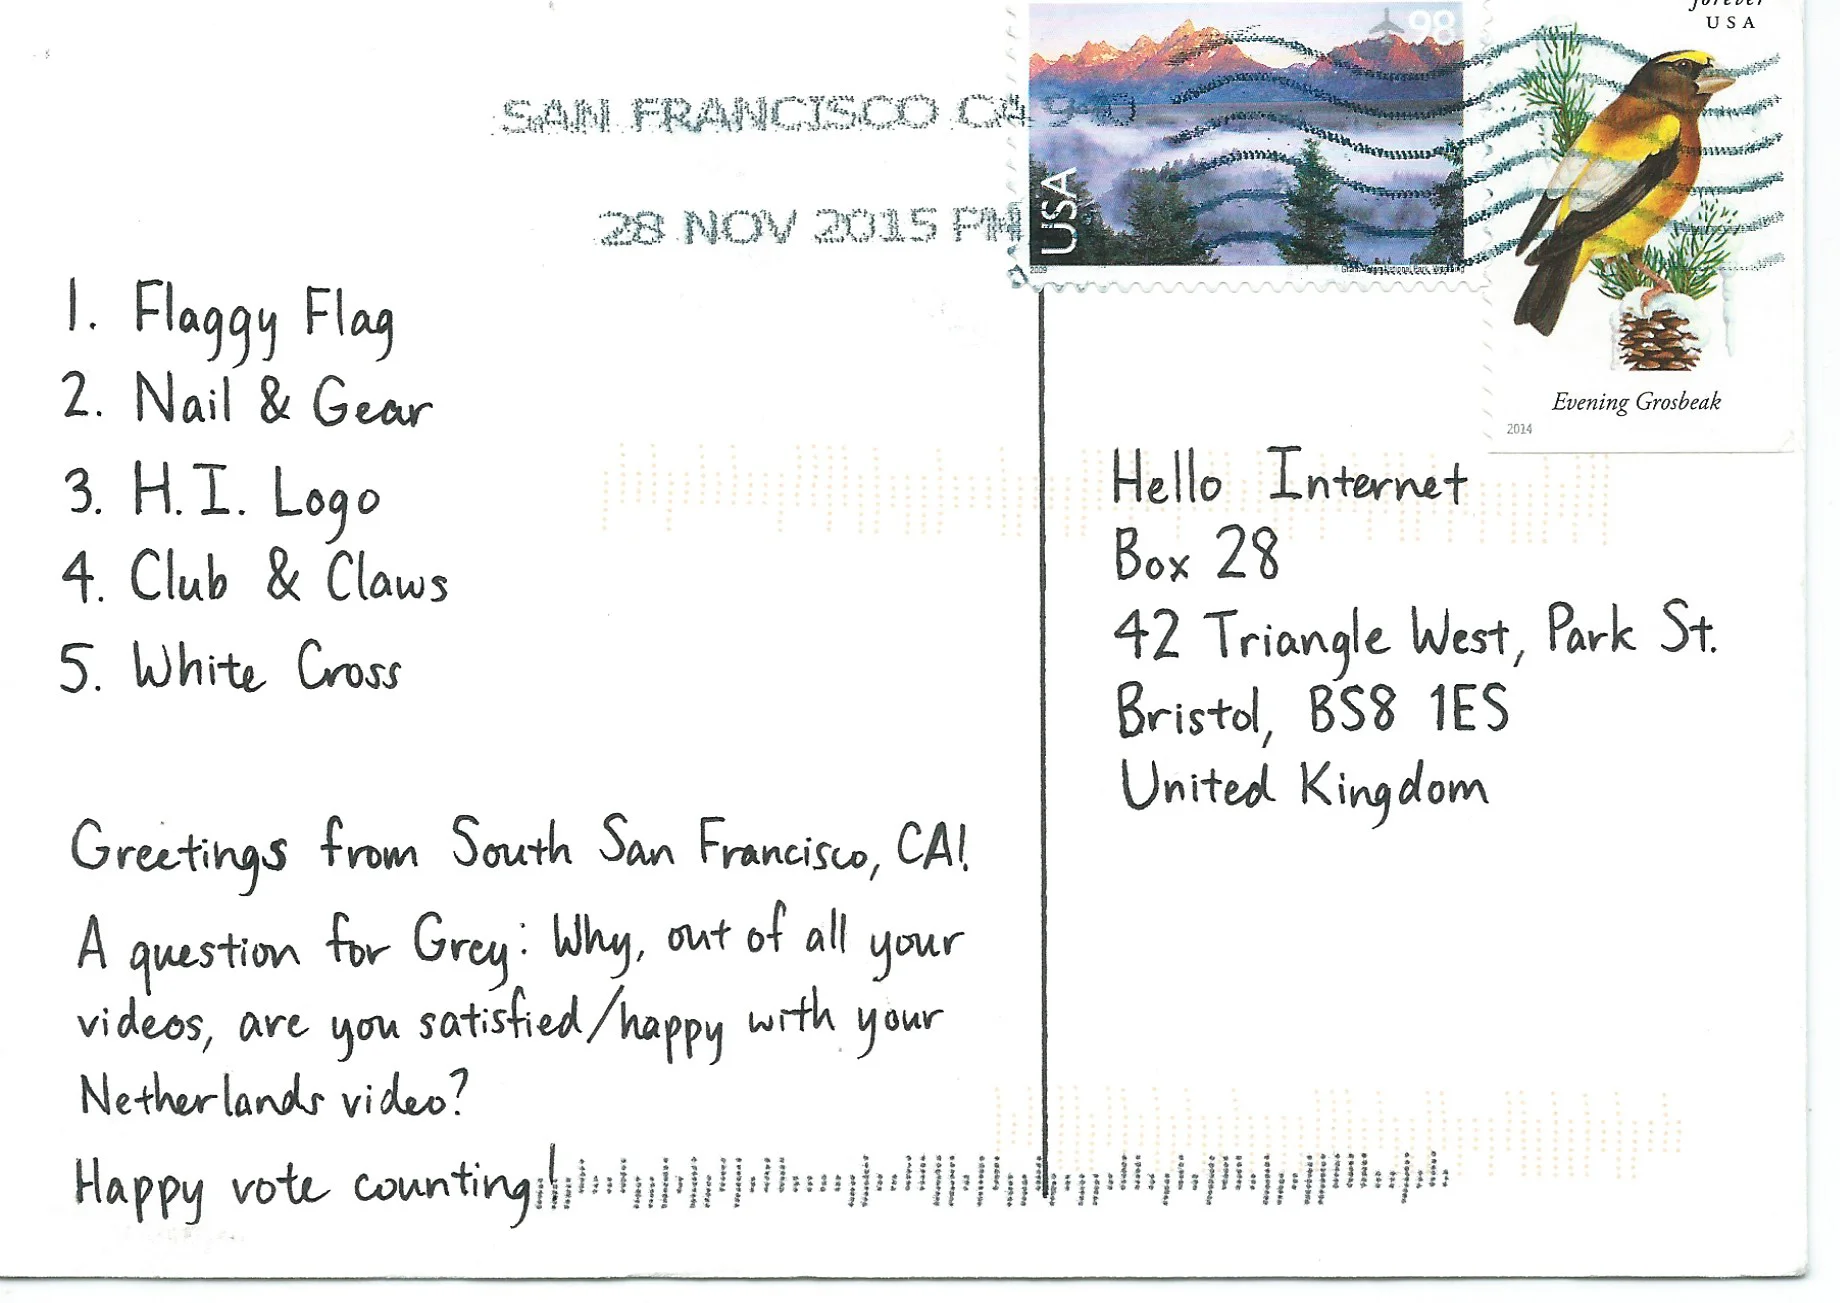 forever
USA
98
SAN FRANCISCO CA 940
28 NOV 2015 PM
USA
2009
Grand Teton National Park, Wyoming
Evening Grosbeak
2014
1. Flaggy Flag
2. Nail & Gear
3. H.I. Logo
4. Club & Claws
5. White Cross
Greetings from South San Francisco, CA!
A question for Grey: Why, out of all your
videos, are you satisfied/happy with your
Netherlands video?
Happy vote counting!
Hello Internet
Box 28
42 Triangle West, Park St.
Bristol, BS8 1ES
United Kingdom